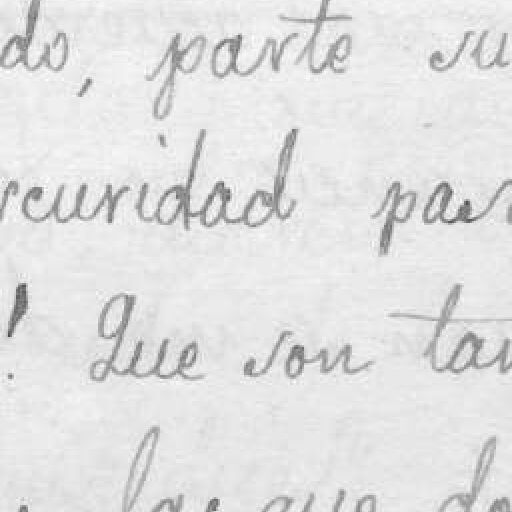 do, parte su
scuridad pas
! Que son tan
las que do